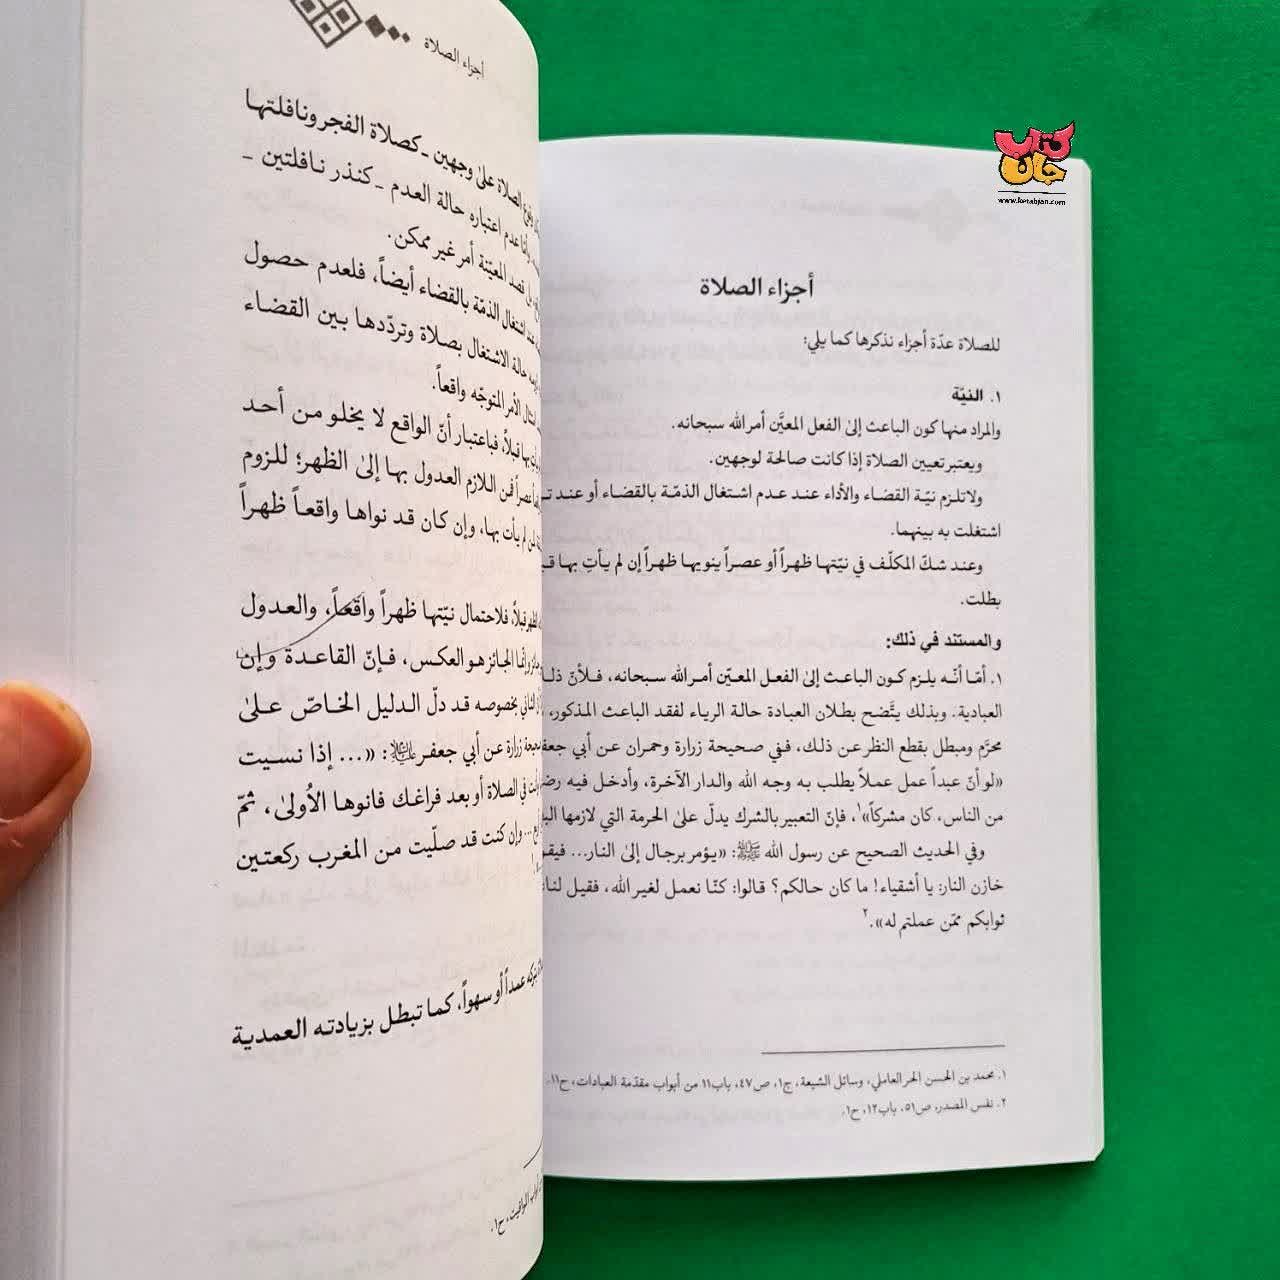 كتاب جان
www.ketabjan.com
أجزاء الصلاة
للصلاة عدّة أجزاء نذكرها كما يلي:
١. النيّة
والمراد منها كون الباعث إلىٰ الفعل المعيَّن أمر الله سبحانه.
ويعتبر تعيين الصلاة إذا كانت صالحة لوجهين.
ولا تلزم نيّة القضاء والأداء عند عدم اشتغال الذمّة بالقضاء أو عند
اشتغلت به بينهما.
وعند شكّ المكلّف في نيّتها ظهراً أو عصراً ينويها ظهراً إن لم يأتِ بها
بطلت.
والمستند في ذلك:
١. أمّا أنّه يلزم كون الباعث إلىٰ الفعل المعيّن أمر الله سبحانه، فلأنّ
العبادية. وبذلك يتَّضح بطلان العبادة حالة الرياء لفقد الباعث المذكور،
محرَّم ومبطل بقطع النظر عن ذلك، ففي صحيحة زرارة وحمران عن أبي
«لو أنّ عبداً عمل عملاً يطلب به وجه الله والدار الآخرة، وأدخل فيه
من الناس، كان مشركاً»١، فإنّ التعبير بالشرك يدلّ علىٰ الحرمة التي لازمها
وفي الحديث الصحيح عن رسول الله ﷺ: «يؤمر برجال إلىٰ النار...
خازن النار: يا أشقياء! ما كان حالكم؟ قالوا: كنّا نعمل لغير الله، فقيل لنا
ثوابكم ممّن عملتم له».٢
١. محمد بن الحسن الحر العاملي، وسائل الشيعة، ج١، ص٤٧، باب١١ من أبواب مقدّمة العبادات، ح١١.
٢. نفس المصدر، ص٥١، باب١٢، ح١.
أجزاء الصلاة
الصلاة علىٰ وجهين ـ كصلاة الفجر ونافلتها
وأمّا عدم اعتباره حالة العدم ـ كنذر نافلتين ـ
قصد المعيّنة أمر غير ممكن.
عند اشتغال الذمّة بالقضاء أيضاً، فلعدم حصول
حالة الاشتغال بصلاة وتردّدها بين القضاء
امتثال الأمر المتوجّه واقعاً.
بها قبلاً، فباعتبار أنّ الواقع لا يخلو من أحد
عصراً فمن اللازم العدول بها إلىٰ الظهر؛ للزوم
لم يأت بها، وإن كان قد نواها واقعاً ظهراً
فلاحتمال نيّتها ظهراً واقعاً، والعدول
وإنّما الجائز هو العكس، فإنّ القاعدة وإن
الثاني بخصوصه قد دلّ الدليل الخاصّ علىٰ
صحيحة زرارة عن أبي جعفر: «... إذا نسيت
في الصلاة أو بعد فراغك فانوها الأولىٰ، ثمّ
وإن كنت قد صلّيت من المغرب ركعتين
بتركه عمداً أو سهواً، كما تبطل بزيادته العمدية
المواقيت، ح١.